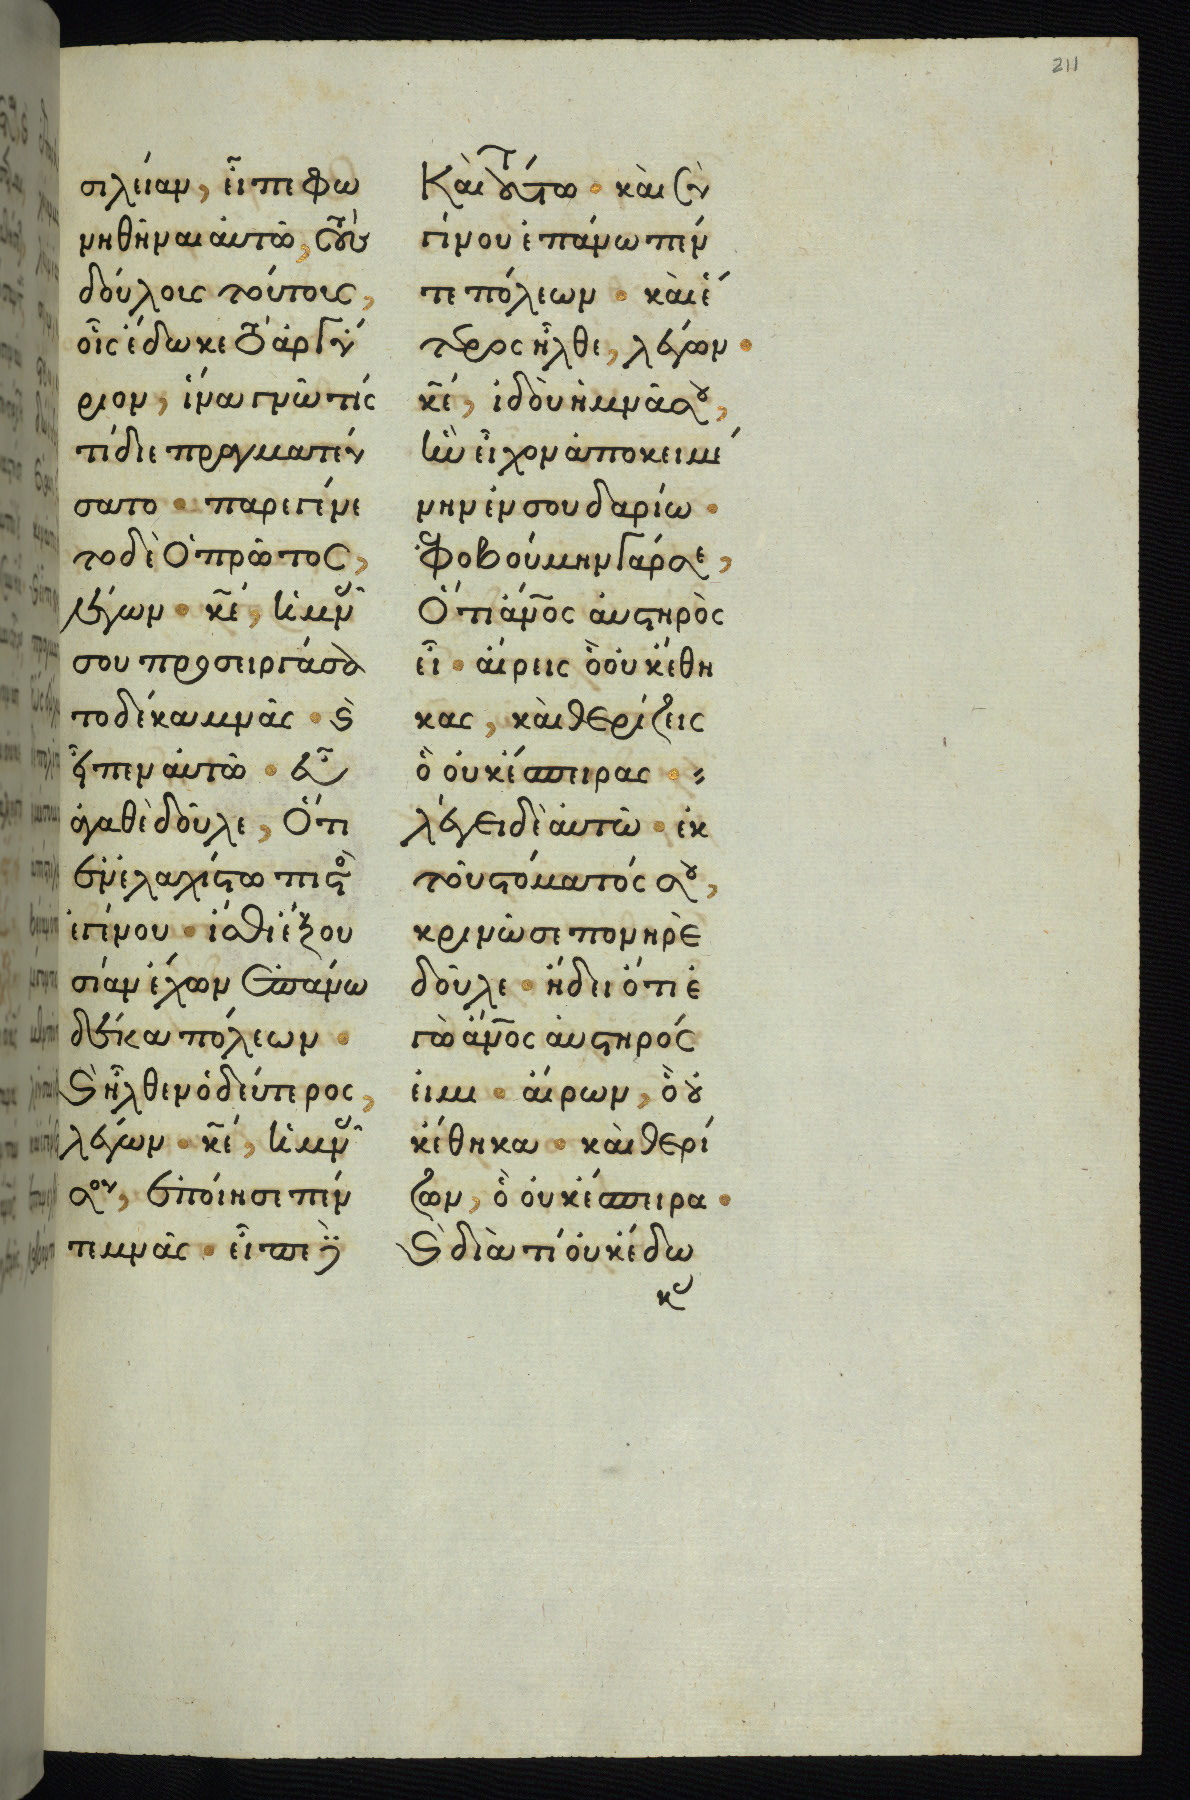 211
σιλείαν, εἶπε φω
νηθῆναι αὐτῶ, τοὺς
δούλοις τούτοις,
οἷς ἔδωκε τὸ ἀργύ
ριον, ἵνα γνῶ τίς
τί διεπραγματεύ
σατο · παρεγένε
το δὲ ὁ πρῶτος,
λέγων · κ̅ε̅, ἡ μνᾶ
σου προσειργάσα
το δέκα μνᾶς · καὶ
εἶπεν αὐτῶ · εὖ
ἀγαθὲ δοῦλε, ὅτι
ἐν ἐλαχίστω πιστὸς
ἐγένου · ἴσθι ἐξου
σίαν ἔχων ἐπάνω
δέκα πόλεων ·
καὶ ἦλθεν ὁ δεύτερος,
λέγων · κ̅ε̅, ἡ μνᾶ
σου, ἐποίησε πέν
τε μνᾶς · εἶπε δὲ
Καὶ τούτω · καὶ σὺ
γίνου ἐπάνω πέν
τε πόλεων · καὶ ἕ
τερος ἦλθε, λέγων ·
κ̅ε̅, ἰδοὺ ἡ μνᾶ σου,
ἣν εἶχον ἀποκειμέ
νην ἐν σουδαρίω ·
ἐφοβούμην γάρ σε,
ὅτι ἄν̅ο̅ς αὐστηρὸς
εἶ · αἴρεις ὃ οὐκ ἔθη
κας, καὶ θερίζεις
ὃ οὐκ ἔσπειρας ·
λέγει δὲ αὐτῶ · ἐκ
τοῦ στόματός σου,
κρινῶ σε πονηρὲ
δοῦλε · ἤδει ὅτι ἐ
γὼ ἄν̅ο̅ς αὐστηρός
εἰμι · αἴρων, ὃ οὐ
κ ἔθηκα · καὶ θερί
ζων, ὃ οὐκ ἔσπειρα ·
καὶ διὰ τί οὐκ ἔδω
κας